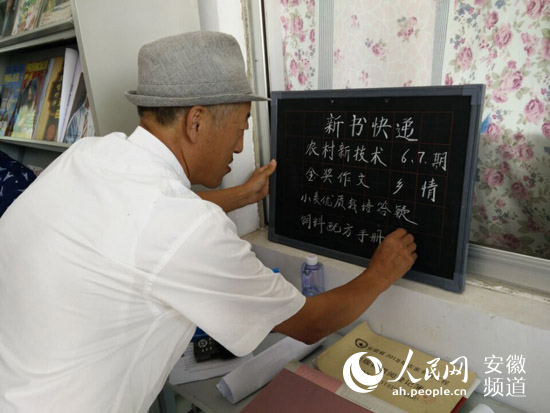 新书快递
农村新技术 6.7.期
金奖作文 乡情
小麦优质栽培答疑
饲料配方手册
人民网 安徽频道
ah.people.com.cn